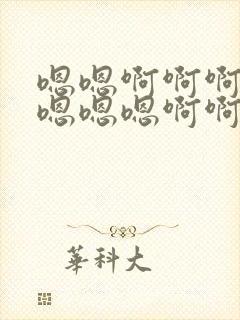 嗯嗯啊啊啊
嗯嗯嗯啊啊
華科大